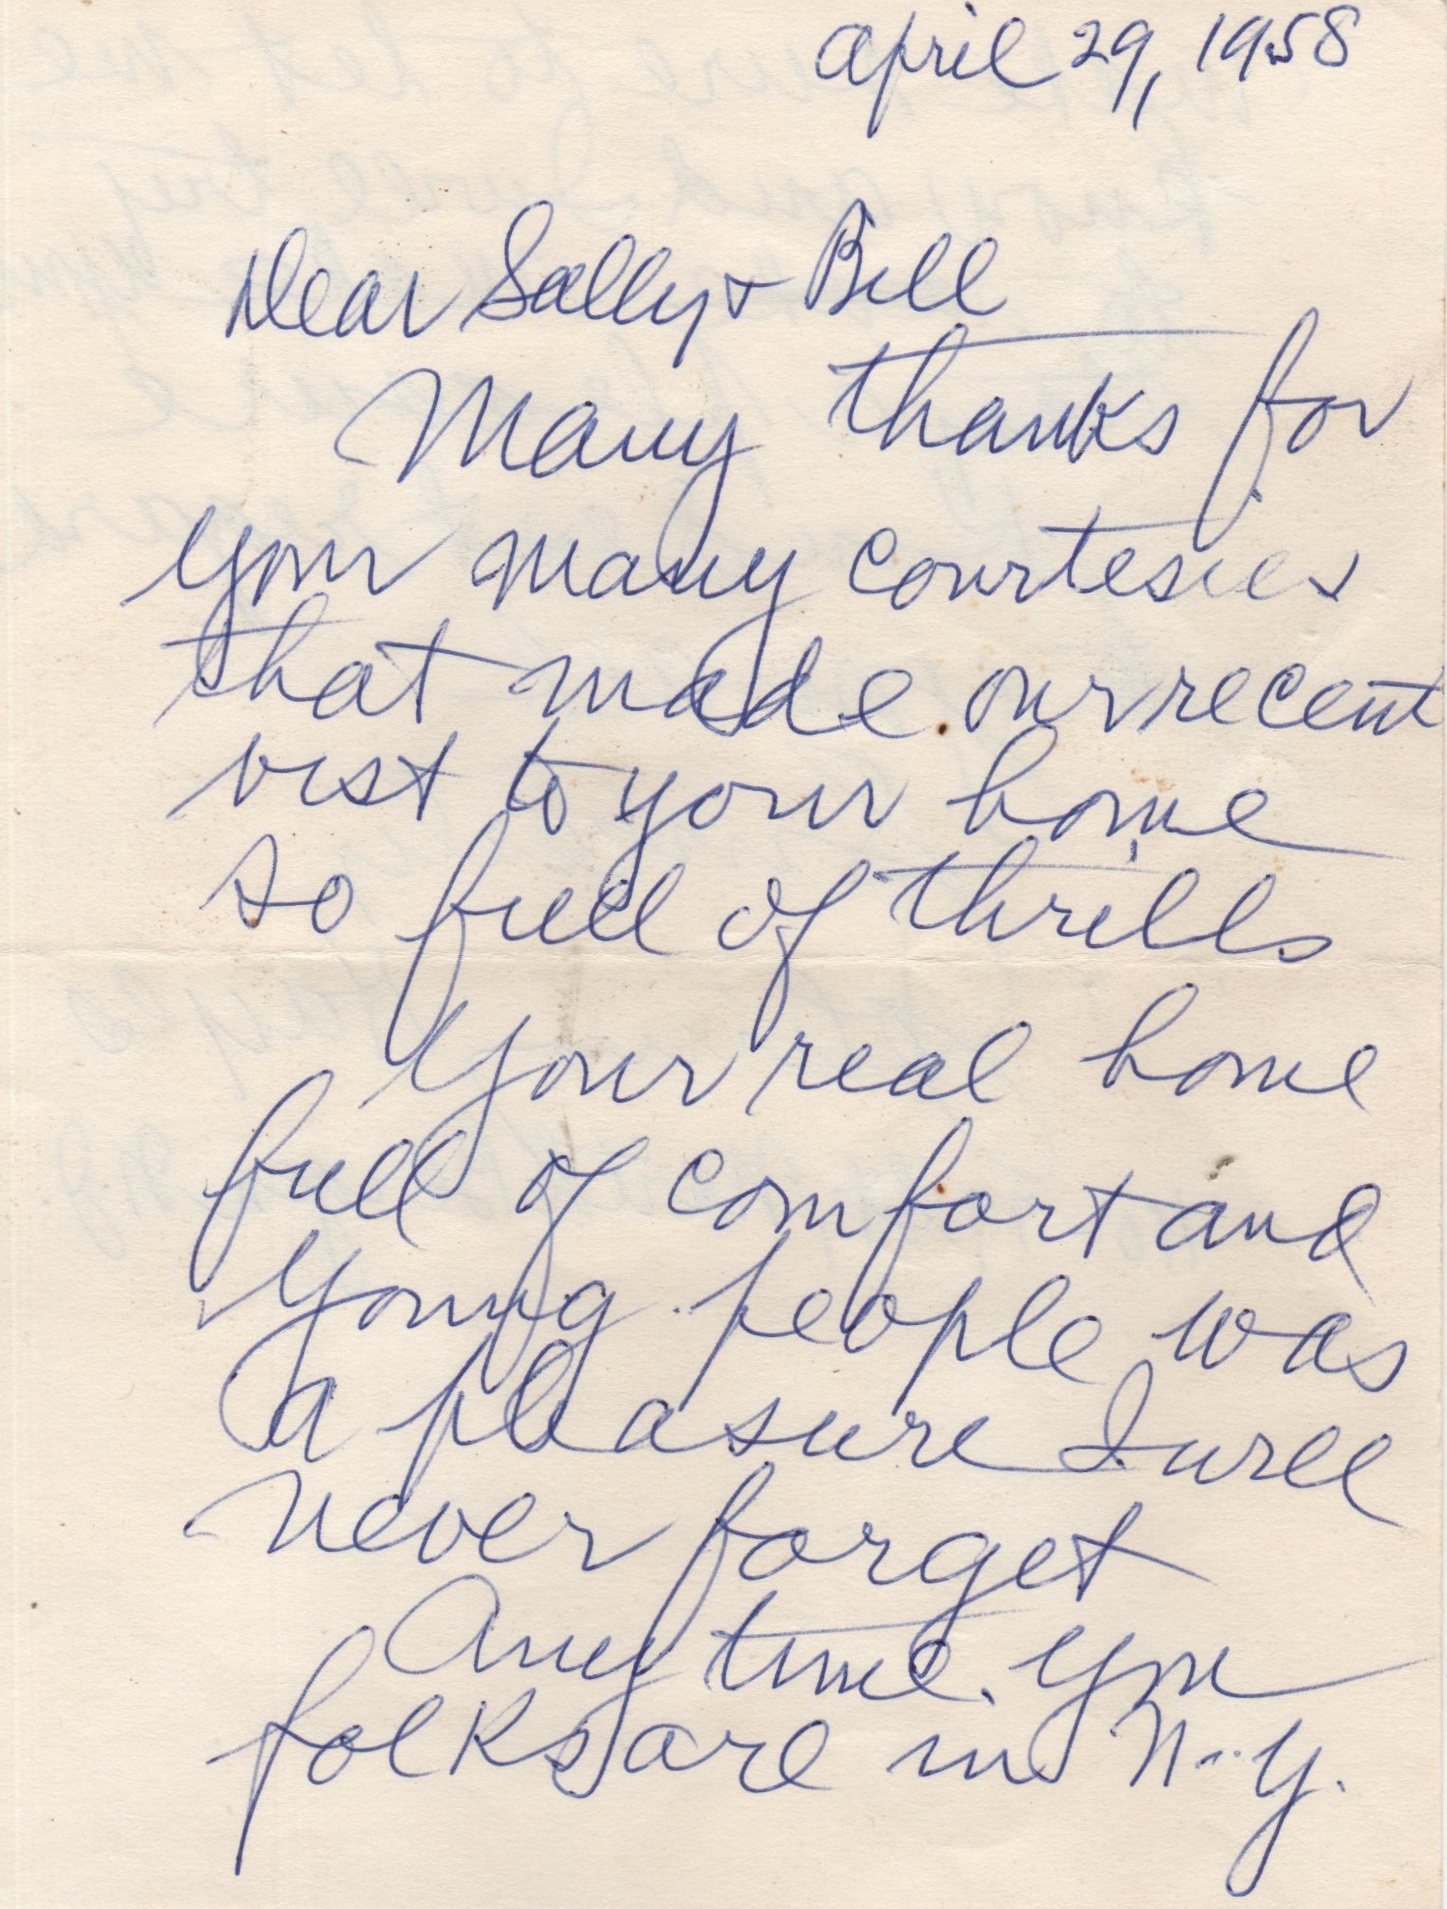 April 29, 1958
Dear Sally + Bill
Many thanks for
your many courtesies
that made our recent
vist to your home
so full of thrills
Your real home
full of comfort and
Young people was
a pleasure I will
never forget
Any time you
folks are in N.Y.